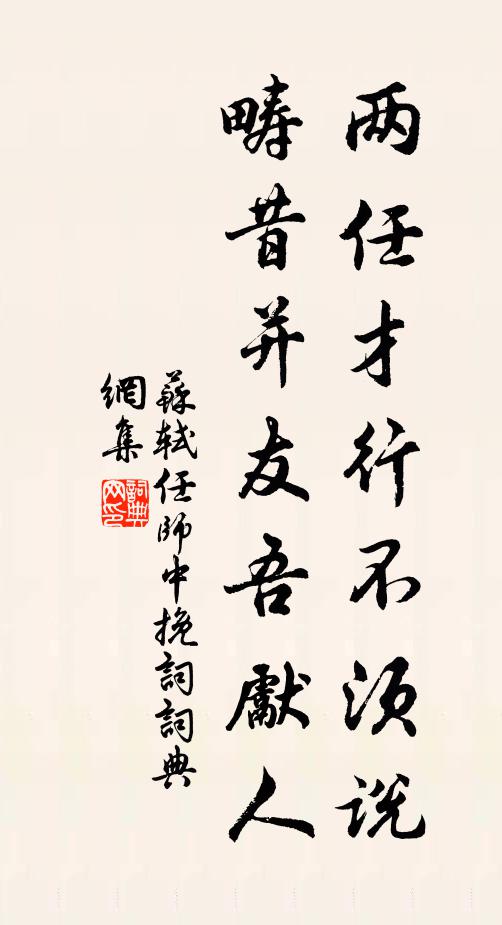 两任才行不须说
畴昔并友吾獻人
蘇軾任師中挽詞詞典
網集
詞典
网印